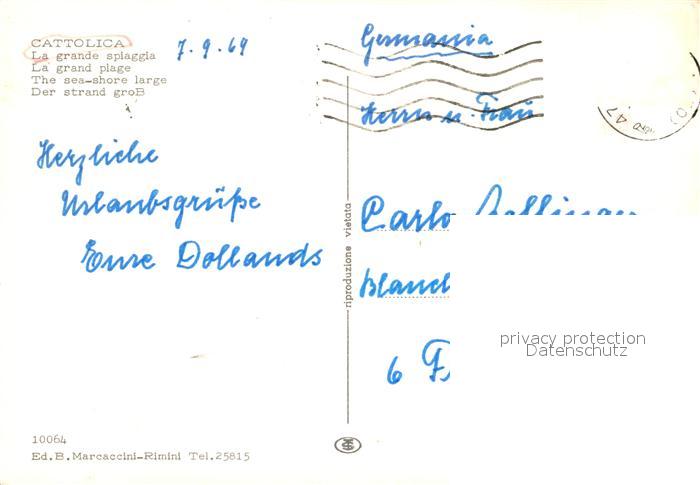 CATTOLICA
La grande spiaggia
La grand plage
The sea-shore large
Der strand groß
7.9.69
Herzliche
Urlaubsgrüße
Eure Dollands
Germania
Herrn u. Frau
Carlo
6 F
riproduzione vietata
privacy protection
Datenschutz
10064
Ed.B.Marcaccini-Rimini Tel.25815